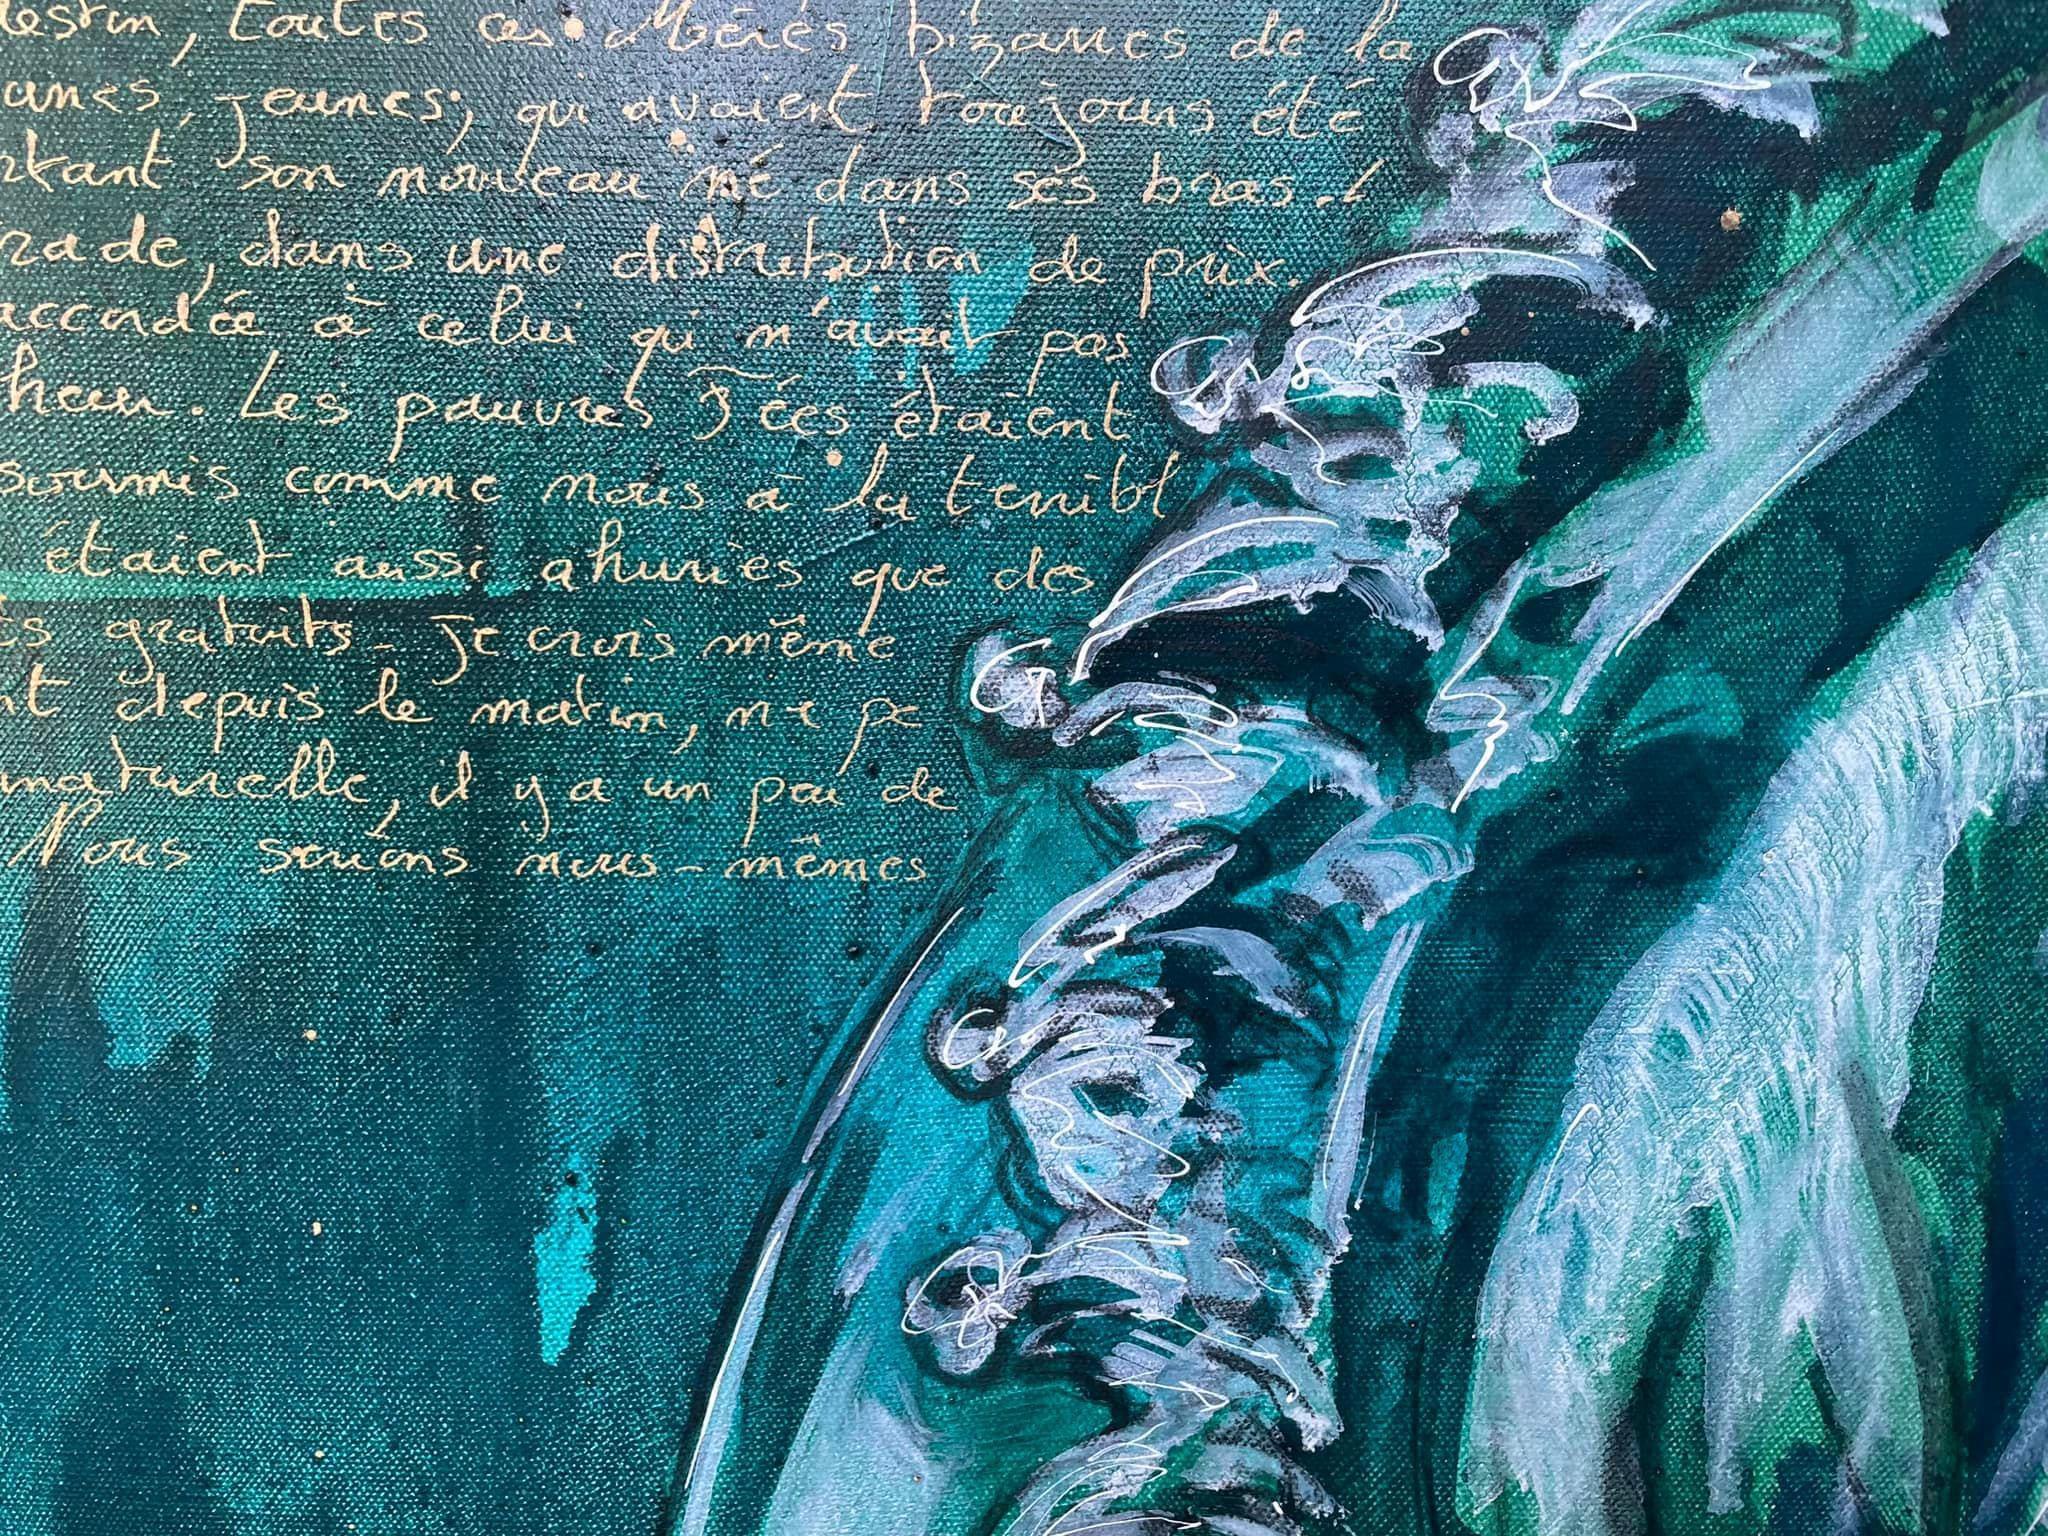 destin, toutes ces Mères bizarres de la
unes jeunes, qui avaient toujours été
rtant son nouveau né dans ses bras.
rade, dans une distribution de prix.
accordée à celui qui n'avait pas
heur. Les pauvres Fées étaient
soumis comme nous à la terribl
étaient aussi ahuries que des
ts gratuits. Je crois même
nt depuis le matin, ne pe
naturelle, il y a un peu de
Nous serions nous-mêmes